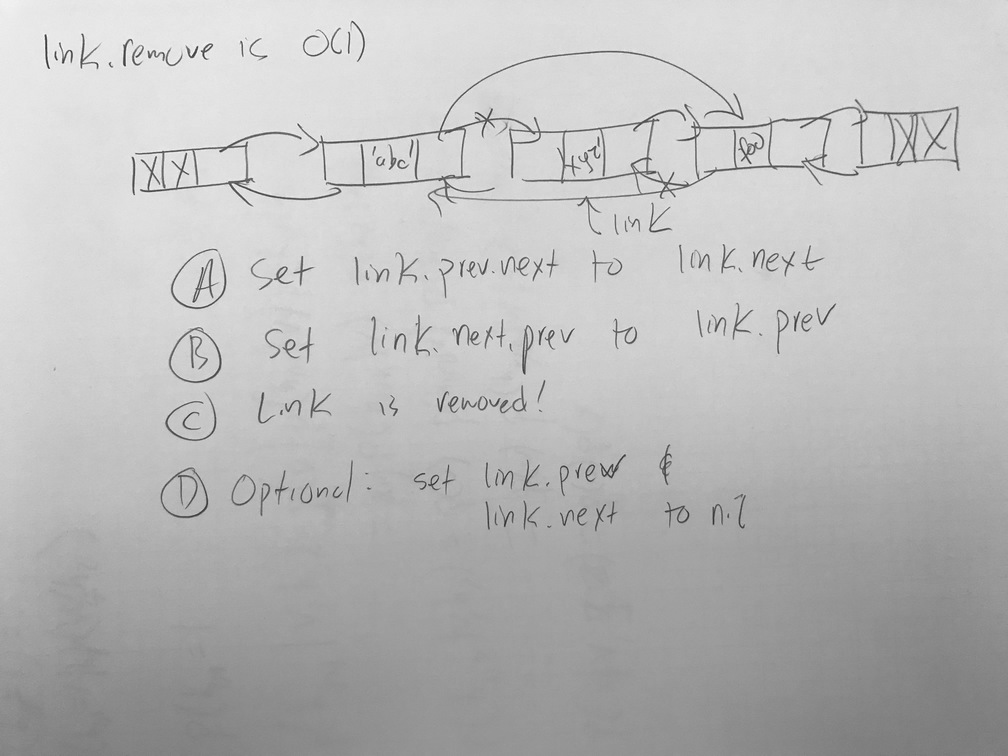 link.remove is O(1)
XX 'abc' 'xyz' 'foo' XX
link
A Set link.prev.next to link.next
B Set link.next.prev to link.prev
C Link is removed!
D Optional: set link.prev &
link.next to nil